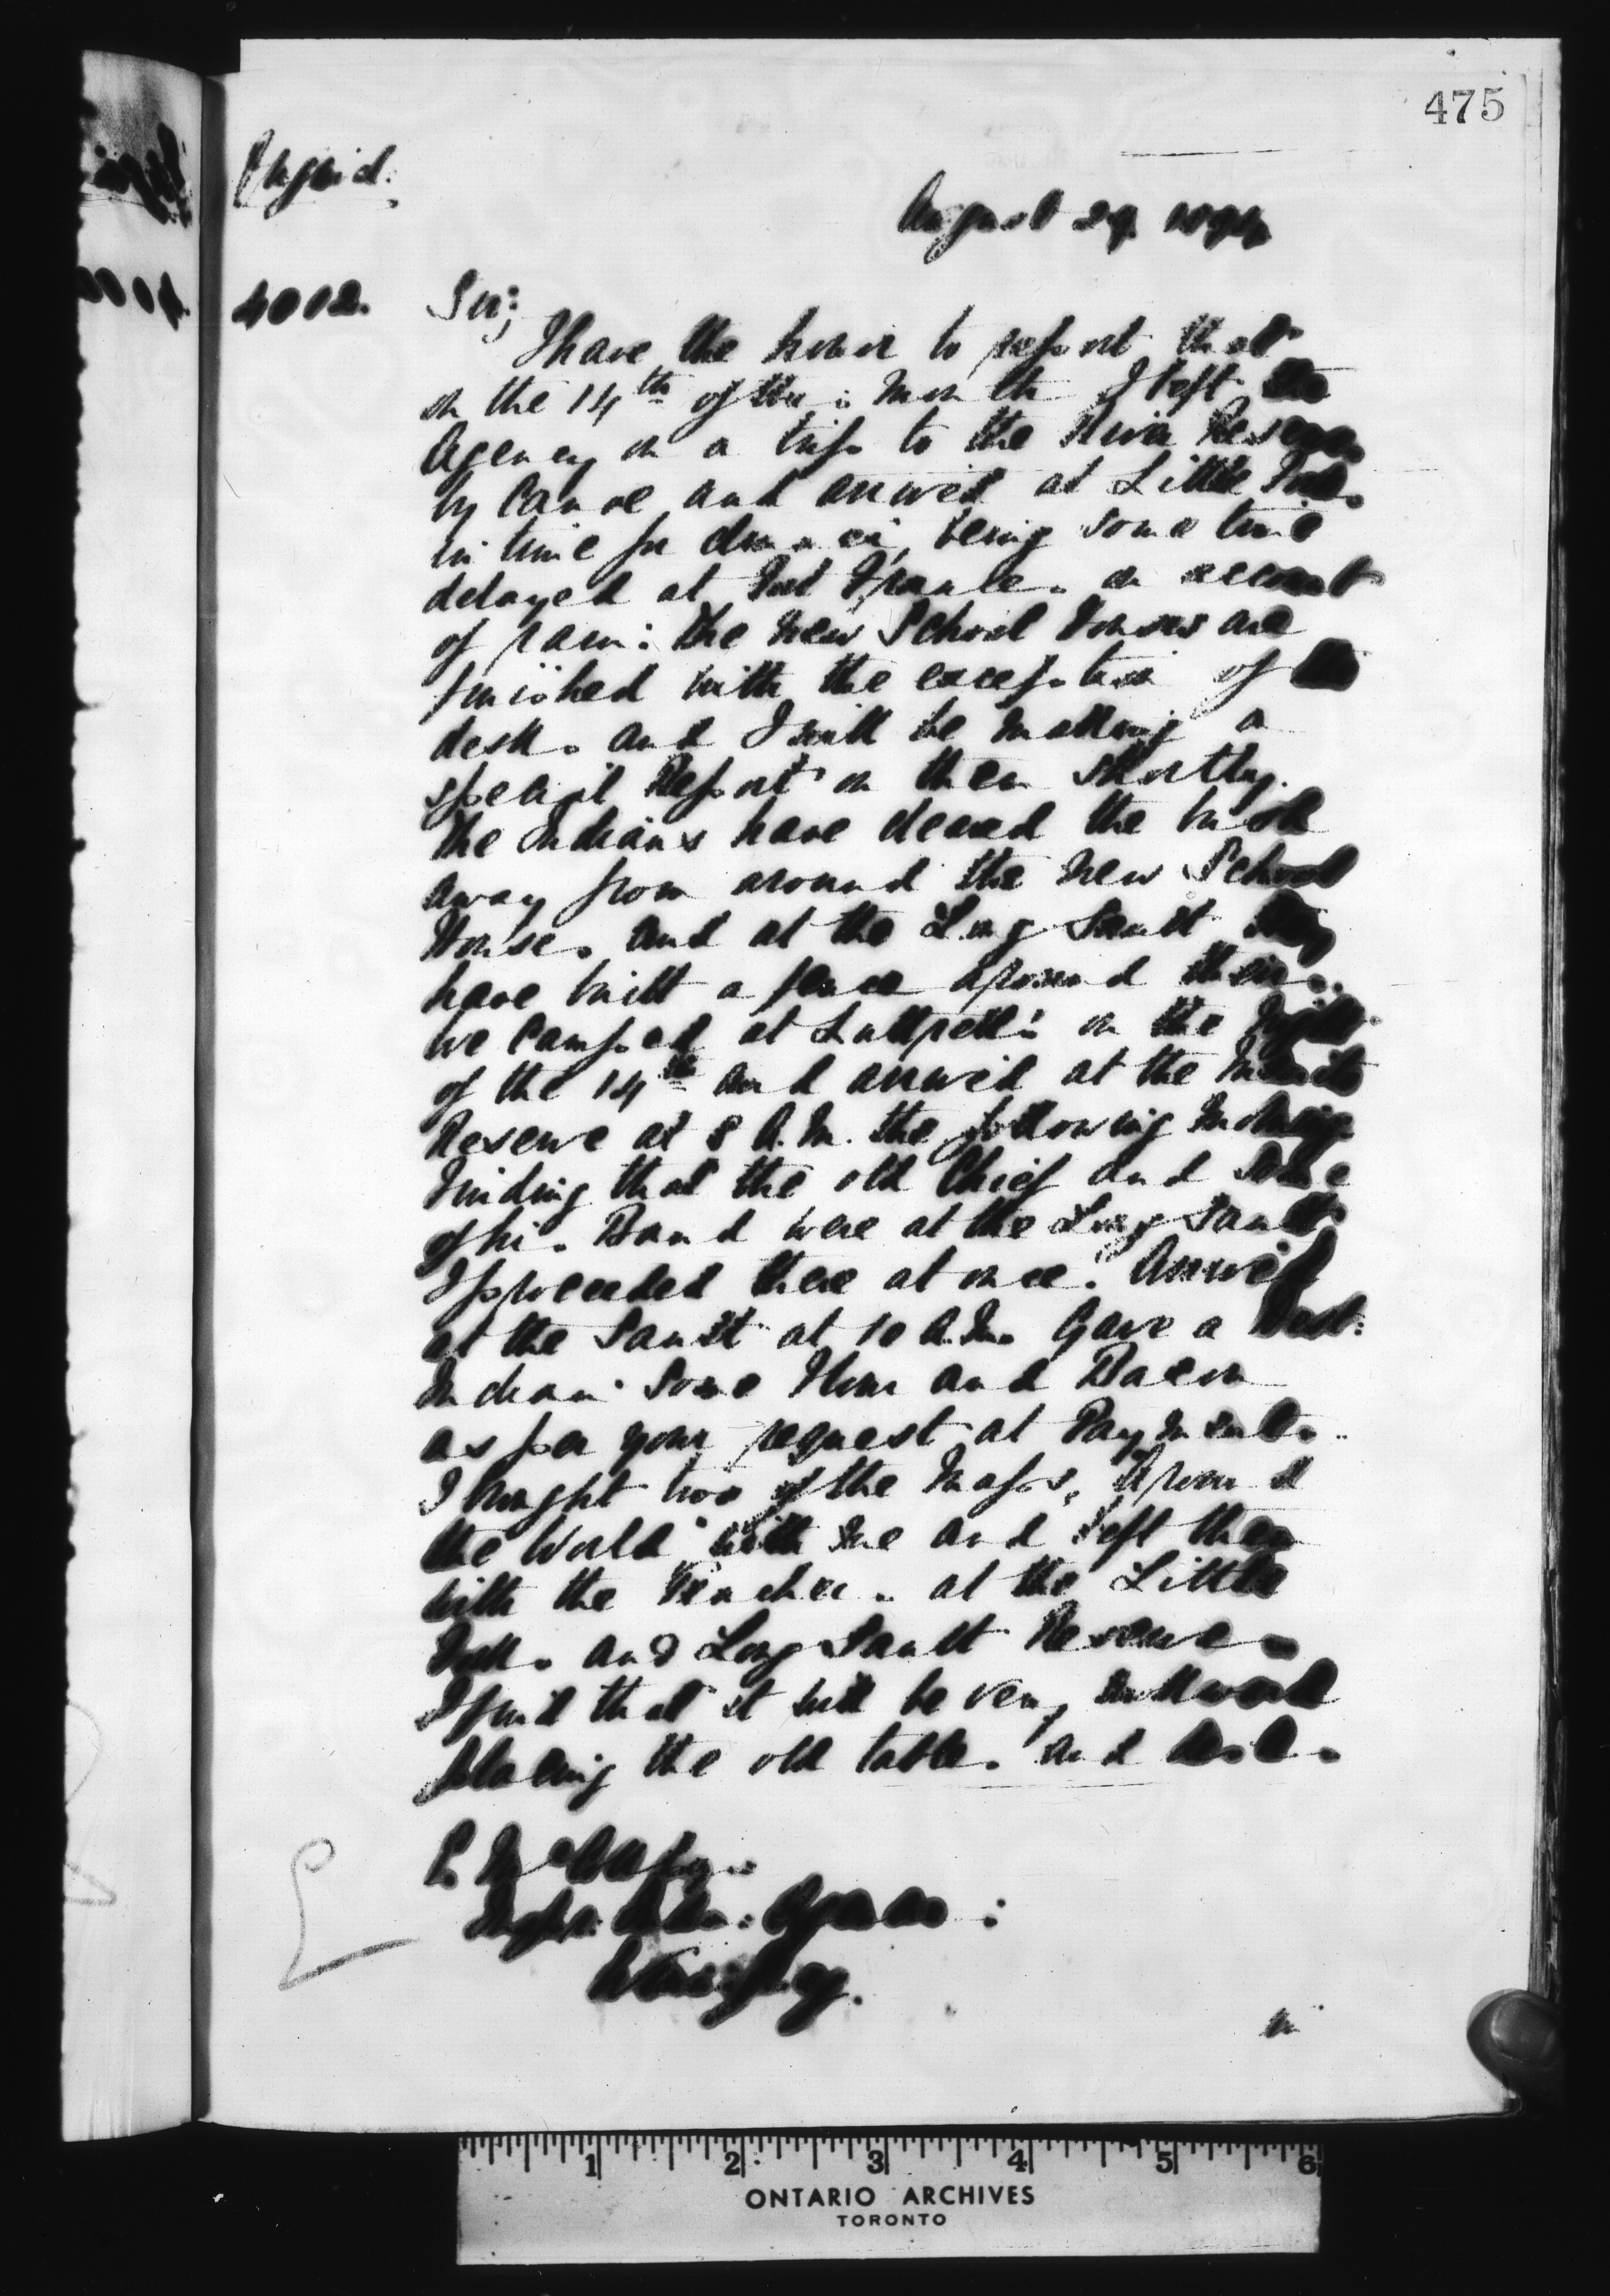 475
August 29. 1894
4002. Sir;
I have the honor to report that
on the 14th of this month I left the
Agency on a trip to the River Reserves
by Canoe and arrived at Little Forks
in time for dinner, being some time
delayed at Fort Frances on account
of rain: the new School Houses are
finished with the exception of the
desks and I will be making a
special Report on them shortly.
The Indians have cleared the brush
away from around the new School
Houses and at the Long Sault they
have built a fence around theirs.
We Camped at on the Night
of the 14th and arrived at the Manitou
Reserve at 8 A.M. the following morning
Finding that the old Chief and some
of his Band were at the Long Sault
I proceeded there at once. Arrived
at the Sault at 10 A.M. Gave a
Indians some Flour and Bacon
as per your request at Payments.
I brought two of the Maps, Around
the World with me and left them
with the Teachers at the Little
Forks and Long Sault Reserves
I find that it will be very awkward
placing the old tables and
E. McColl Esq.
Inspr. Indn. Agencies:
Winnipeg.
1 2 3 4 5 6
ONTARIO ARCHIVES
TORONTO